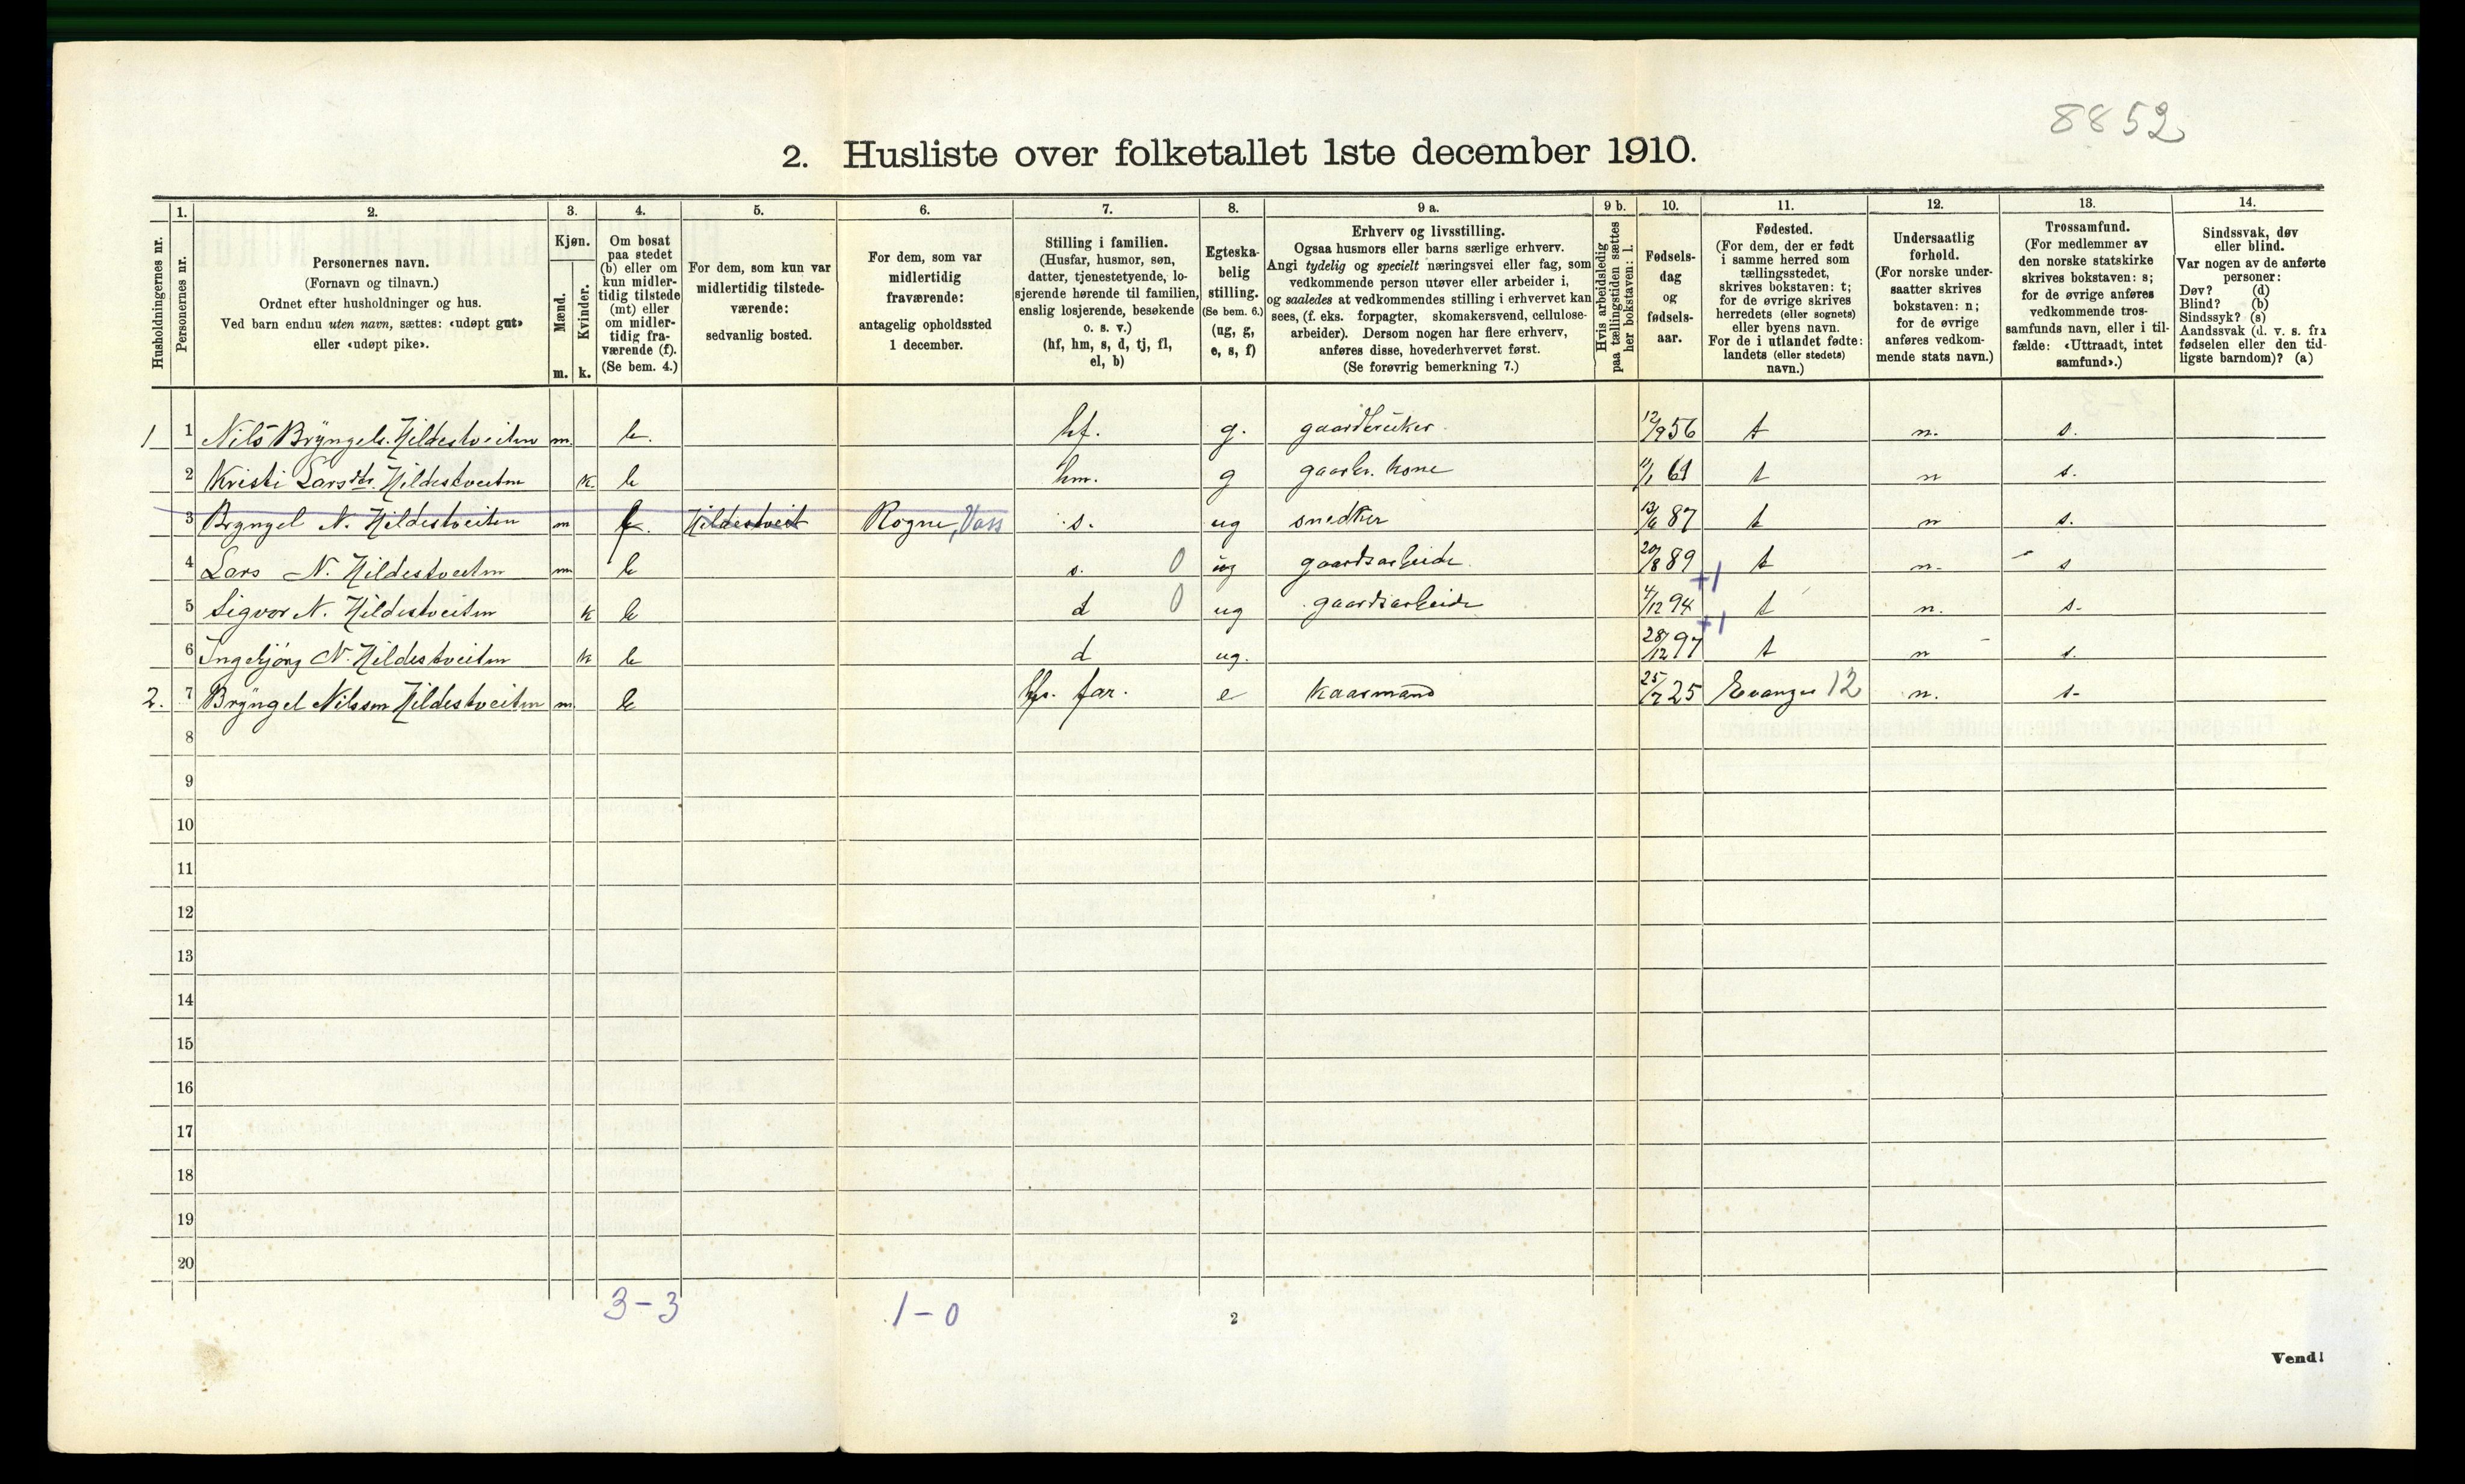 8852
2. Husliste over folketallet 1ste december 1910.
Husholdningernes nr.
1.
Personernes nr.
2.
Personernes navn.
(Fornavn og tilnavn.)
Ordnet efter husholdninger og hus.
Ved barn endnu uten navn, sættes: «udøpt gut»
eller «udøpt pike».
3.
Kjøn.
Mænd.
Kvinder.
m. k.
4.
Om bosat
paa stedet
(b) eller om
kun midler-
tidig tilstede
(mt) eller
om midler-
tidig fra-
værende (f).
(Se bem. 4.)
5.
For dem, som kun var
midlertidig tilstede-
værende:
sedvanlig bosted.
6.
For dem, som var
midlertidig
fraværende:
antagelig opholdssted
1 december.
7.
Stilling i familien.
(Husfar, husmor, søn,
datter, tjenestetyende, lo-
sjerende hørende til familien,
enslig losjerende, besøkende
o. s. v.)
(hf, hm, s, d, tj, fl,
el, b)
8.
Egteska-
belig
stilling.
(Se bem. 6.)
(ug, g,
e, s, f)
9 a.
Erhverv og livsstilling.
Ogsaa husmors eller barns særlige erhverv.
Angi tydelig og specielt næringsvei eller fag, som
vedkommende person utøver eller arbeider i,
og saaledes at vedkommendes stilling i erhvervet kan
sees, (f. eks. forpagter, skomakersvend, cellulose-
arbeider). Dersom nogen har flere erhverv,
anføres disse, hovederhvervet først.
(Se forøvrig bemerkning 7.)
9 b.
Hvis arbeidsledig
paa tællingstiden sættes
her bokstaven: l.
10.
Fødsels-
dag
og
fødsels-
aar.
11.
Fødested.
(For dem, der er født
i samme herred som
tællingsstedet,
skrives bokstaven: t;
for de øvrige skrives
herredets (eller sognets)
eller byens navn.
For de i utlandet fødte:
landets (eller stedets)
navn.)
12.
Undersaatlig
forhold.
(For norske under-
saatter skrives
bokstaven: n;
for de øvrige
anføres vedkom-
mende stats navn.)
13.
Trossamfund.
(For medlemmer av
den norske statskirke
skrives bokstaven: s;
for de øvrige anføres
vedkommende tros-
samfunds navn, eller i til-
fælde: «Uttraadt, intet
samfund».)
14.
Sindssvak, døv
eller blind.
Var nogen av de anførte
personer:
Døv? (d)
Blind? (b)
Sindssyk? (s)
Aandssvak (d. v. s. fra
fødselen eller den tid-
ligste barndom)? (a)
1 1 Nils Bryngels. Hildestveiten m. b. hf. g. gaardbruker 12/9 56 t n. s.
2 Kristi Larsdtr. Hildestveiten k b hm. g gaarbr. kone 11/1 61 t n s.
3 Bryngel N. Hildestveiten m f. Hildestveit Rogne, Voss s. ug snedker 13/6 87 t n s.
4 Lars N. Hildestveiten m b s. 0 ug gaardsarbeide 20/8 89 t n. s
+1
5 Sigvor N. Hildestveiten k b d 0 ug gaardsarbeide 4/12 94 t n. s.
+1
6 Ingebjörg N. Hildestveiten k b d ug. 28/12 97 t n s.
2. 7 Bryngel Nilsson Hildestveiten m b far. e kaarmand 25/7 25 Evanger 12 n. s
8
9
10
11
12
13
14
15
16
17
18
19
20
3-3 1-0
2
Vend!